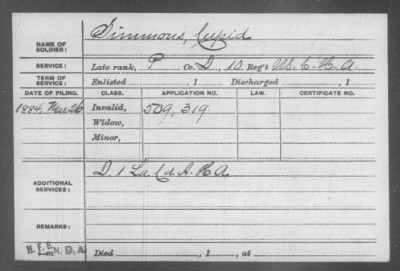 NAME OF SOLDIER: Simmons, Cupid
SERVICE: Late rank, P Co. D, 10 Reg't U.S.C.H.A.
TERM OF SERVICE: Enlisted , 1 Discharged , 1
DATE OF FILING. CLASS. APPLICATION NO. LAW. CERTIFICATE NO.
1884, Mar 26 Invalid, 509,319
Widow,
Minor,
ADDITIONAL SERVICES: D 1 La Cd. H.A.
REMARKS:
Died , 1 , at